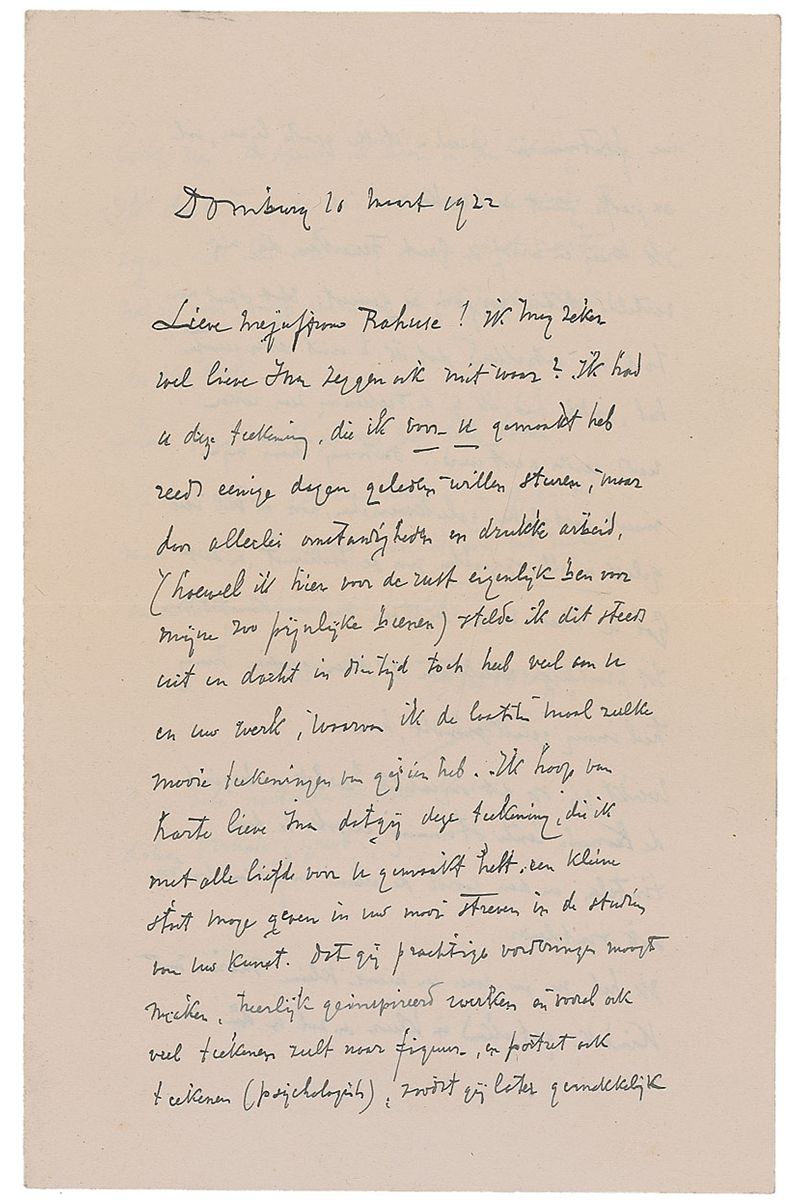 Domburg 10 Maart 1922
Lieve Mejuffrouw Rahusen! ik mag zeker
wel lieve Ina zeggen ook niet waar? Ik had
u deze teekening, die ik voor u gemaakt heb
reeds eenige dagen geleden willen sturen, maar
door allerlei omstandigheden en drukke arbeid,
(hoewel ik hier voor de rust eigenlijk ben voor
mijne zoo pijnlijke beenen) stelde ik dit steeds
uit en dacht in die tijd toch heel veel aan u
en uw werk, waarvan ik de laatste maal zulke
mooie teekeningen van gezien heb. Ik hoop van
harte lieve Ina dat gij deze teekening, die ik
met alle liefde voor u gemaakt heb, een kleine
stoot moge geven in uw mooi streven in de studie
van uw kunst. Dat gij prachtige vorderingen moogt
maken, heerlijk geïnspireerd werken en vooral ook
veel teekenen zult naar figuur, en portret ook
teekenen (psychologisch), zoodat gij later gemakkelijk